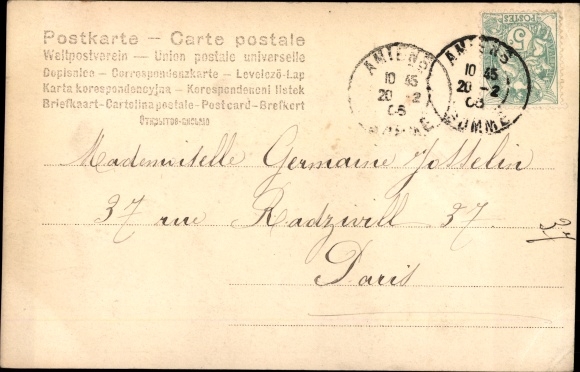 Postkarte — Carte postale
Weltpostverein — Union postale universelle
Dopisnica — Correspondenzkarte — Levelező-Lap
Karta korespondencyjna — Korespondencni listek
Briefkaart - Cartolina postale - Postcard - Brefkort
AMIENS
10 45
20 - 2
06
SOMME
AMIENS
10 45
20 - 2
06
SOMME
POSTES
5
Mademoiselle Germaine Josselin
37 rue Radziwill 37.
37
Paris